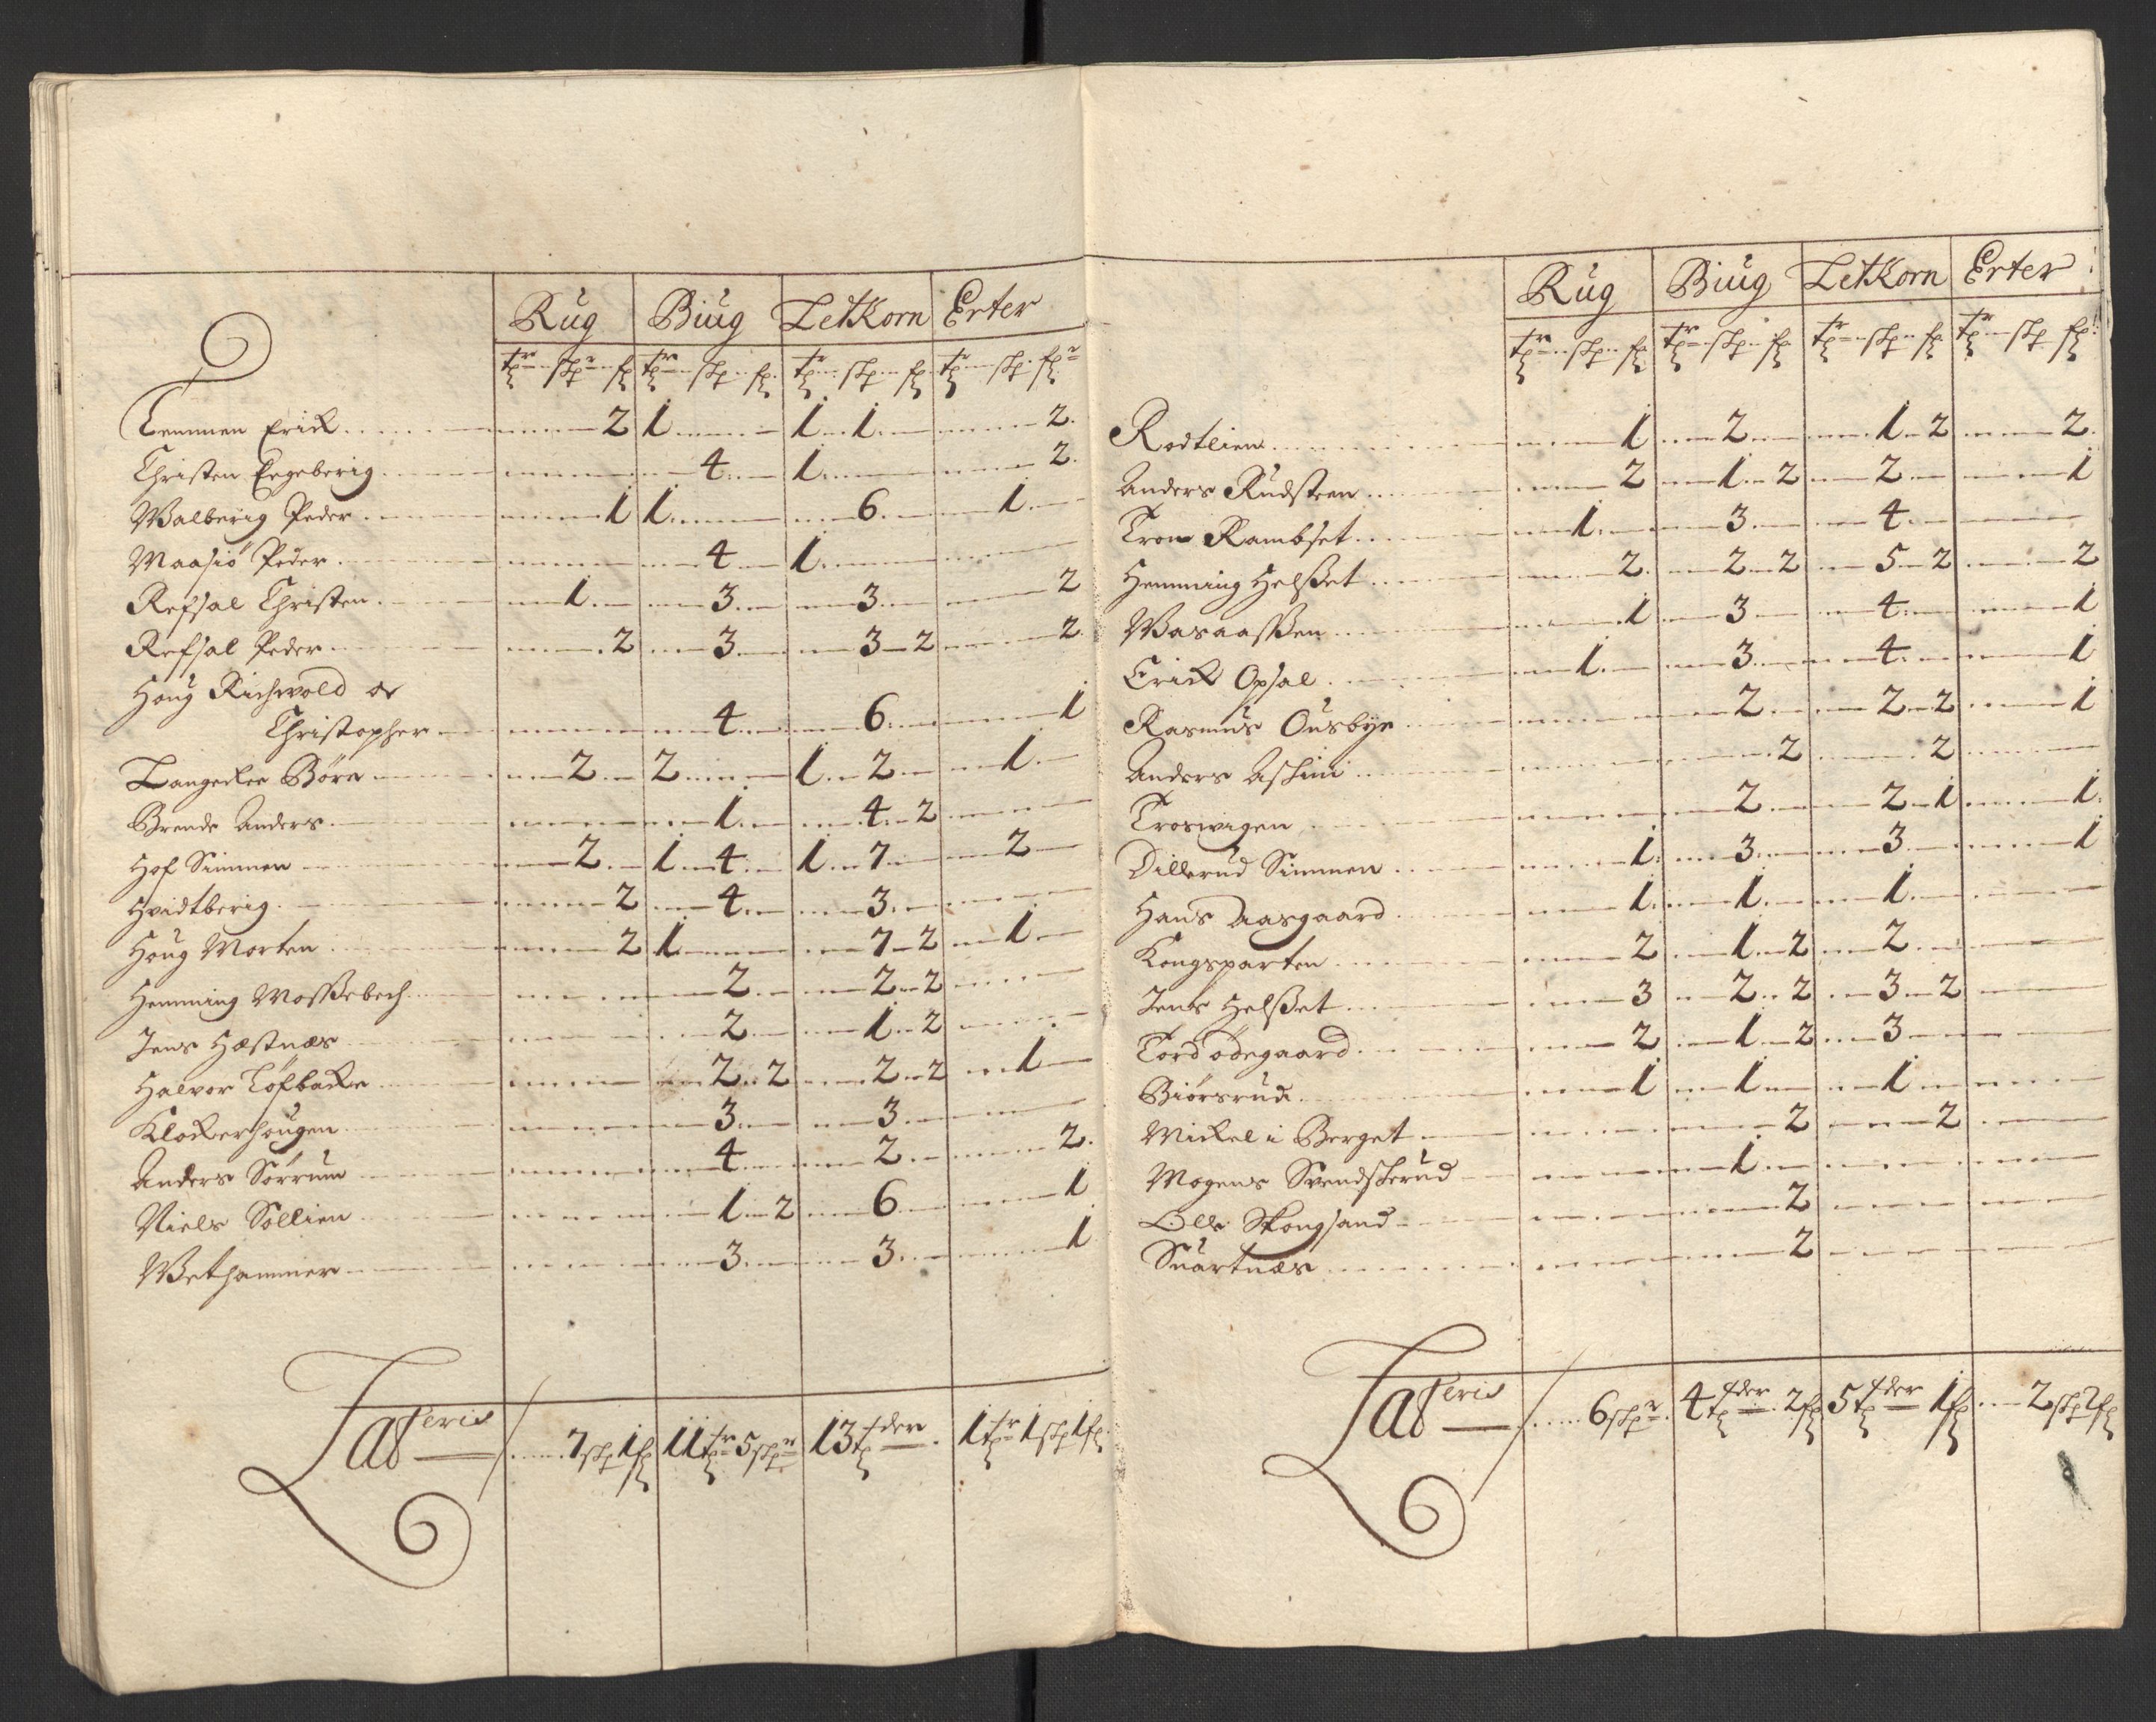 Rug Biug Letkorn Erter
tr skp fr tr skp fr tr skp fr tr skp fr
Lemmen Erick 2 1 1 1 2
Christen Engeberig 4 1 2
Walberig Peder 1 1 6 1
Maasiø Peder 4 1
Refsal Christen 1 3 3 2
Refsal Peder 2 3 3 2 2
Houg Richwold or
Christopher 4 6 1
Langeckre Børn 2 2 1 2 1
Brende Anders 1 4 2
Hof Simmen 2 1 4 1 7 2
Hvidtberig 2 4 3
Houg Morten 2 1 7 2 1
Hemming Mosßebech 2 2 2
Jens Hæstnæs 2 1 2
Halvor Løfbacke 2 2 2 2 1
Klockerhougen 3 3
Anders Sørrum 4 2 2
Niels Søllien 1 2 6 1
Wethammer 3 3 1
Lateris 7 skp 1 f 11 tr 5 skpr 13 tder 1 tr 1 skp 1 f
Rug Biug Letkorn Erter
tr skp fr tr skp fr tr skp fr tr skp fr
Rodtlien 1 2 1 2 2
Anders Rudsteen 2 1 2 2 1
Tron Rambset 1 3 4
Hemming Helsßet 2 2 2 5 2 2
Wasaasßen 1 3 4 1
Erick Opsal 1 3 4 1
Rasmus Ousbye 2 2 2 1
Anders 2 2
Troswigen 2 2 1 1
Dillerud Simmen 1 3 3 1
Hans Aasgaard 1 1 1
Kongsparten 2 1 2 2
Jens Helsßet 3 2 2 3 2
Tord ødegaard 2 1 2 3
Biørsrud 1 1 1
Mickel i Berget 2 2
Mogens Svendskerud 1
Olle Skougsand 2
Suartnæs 2
Lateris 6 skpr 4 tder 2 f 5 tder 1 f 2 skp 2 f